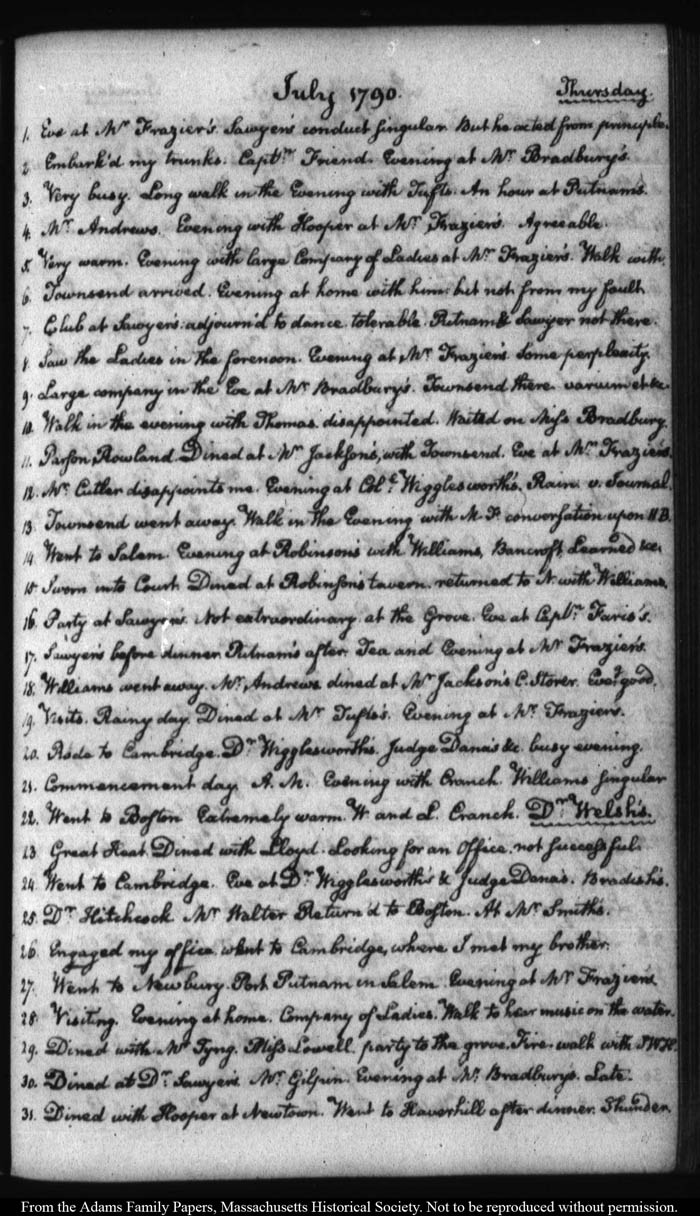 July 1790. Thursday.
1. Eve at Mr Frazier's. Sawyer's conduct singular. But he acted from principle.
2. Embark'd my trunks. Captn Friend. Evening at Mr Bradbury's.
3. Very busy. Long walk in the Evening with Tufts. An hour at Putnam's.
4. Mr Andrews. Evening with Hooper at Mr Frazier's. Agreeable.
5. Very warm. Evening with large Company of Ladies at Mr Frazier's. Walk with.
6. Townsend arrived. Evening at home with him: but not from my fault.
7. Club at Sawyer's: adjourn'd to dance. tolerable. Putnam & Sawyer not there.
8. Saw the Ladies in the forenoon. Evening at Mr Frazier's. Some perplexity.
9. Large company in the Eve at Mr Bradbury's. Townsend there. varium et &c.
10. Walk in the evening with Thomas. disappointed. Waited on Miss Bradbury.
11. Parson Rowland. Dined at Mr Jackson's, with Townsend. Eve at Mr Frazier's.
12. Mr Cutler disappoints me. Evening at Cole Wigglesworth's. Rain. v. Journal.
13. Townsend went away. Walk in the Evening with M. F. conversation upon
14. Went to Salem. Evening at Robinson's with Williams, Bancroft, Learned &c.
15. Sworn into Court. Dined at Robinson's tavern. returned to N. with Williams.
16. Party at Sawyer's. Not extraordinary. at the Grove. Eve at Captn Faris's.
17. Sawyer's before dinner. Putnam's after. Tea and Evening at Mr Frazier's.
18. Williams went away. Mr Andrews dined at Mr Jackson's C. Storer. Eveg good.
19. Visits. Rainy day. Dined at Mr Tufts's. Evening at Mr Frazier's.
20. Rode to Cambridge. Dr Wigglesworth's. Judge Dana's &c. busy evening.
21. Commencement day. A. M. Evening with Cranch. Williams singular
22. Went to Boston Extremely warm. W and L. Cranch. Dr Welsh's.
23. Great Heat. Dined with Lloyd. Looking for an Office. not successful.
24. Went to Cambridge. Eve at Dr Wigglesworth's & Judge Dana's. Bradish's.
25. Dr Hitchcock Mr Walter Return'd to Boston. At Mr Smith's.
26. Engaged my office. went to Cambridge, where I met my brother.
27. Went to Newbury-Port. Putnam in Salem. Evening at Mr Frazier's
28. Visiting. Evening at home. Company of Ladies. Walk to hear music on the water.
29. Dined with Mr Tyng. Miss Lowell. party to the grove. Fire. walk with
30. Dined at Dr Sawyer's. Mr Gilpin. Evening at Mr Bradbury's. Late.
31. Dined with Hooper at Newtown. Went to Haverhill after dinner. Thunder.
From the Adams Family Papers, Massachusetts Historical Society. Not to be reproduced without permission.